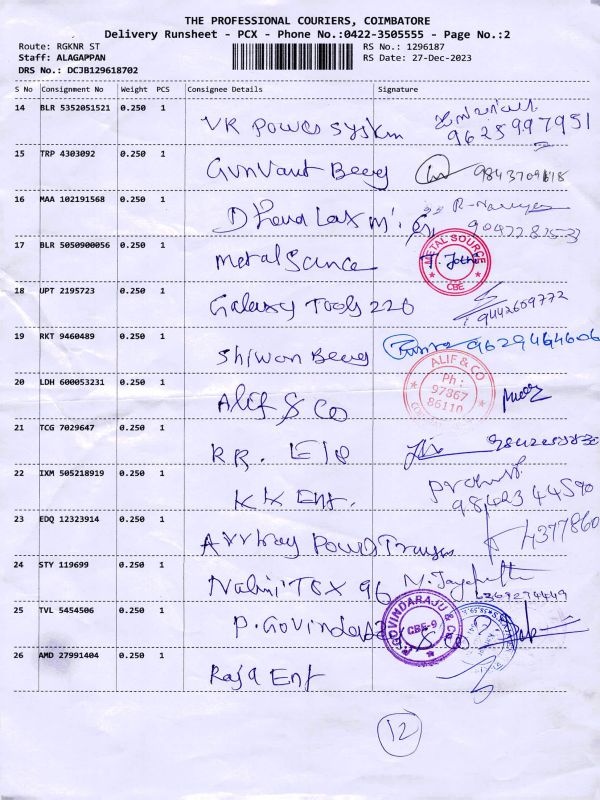 THE PROFESSIONAL COURIERS, COIMBATORE
Delivery Runsheet - PCX - Phone No.:0422-3505555 - Page No.:2
Route: RGKNR ST RS No.: 1296187
Staff: ALAGAPPAN RS Date: 27-Dec-2023
DRS No.: DCJB129618702
S No Consignment No Weight PCS Consignee Details Signature
14 BLR 5352051521 0.250 1 VR Power System
9625997951
15 TRP 4303092 0.250 1 Gunvant Beey
16 MAA 102191568 0.250 1 Dhana Laxmi
17 BLR 5050900056 0.250 1 Metal Source METAL SOURCE CBE
18 UPT 2195723 0.250 1 Galaxy Tools 226 9442609772
19 RKT 9460489 0.250 1 Shiwan Beey 9629464606
20 LDH 600053231 0.250 1 Alif & Co ALIF & CO Ph: 97867 86110
21 TCG 7029647 0.250 1 R.R. Ele
22 IXM 505218919 0.250 1 KK Ent.
9842344590
23 EDQ 12323914 0.250 1 Power
24 STY 119699 0.250 1 Nalini Tex 96
25 TVL 5454506 0.250 1 P. Govindaraj & Co GOVINDARAJU & CO CBE-9
26 AMD 27991404 0.250 1 Raja Ent
12